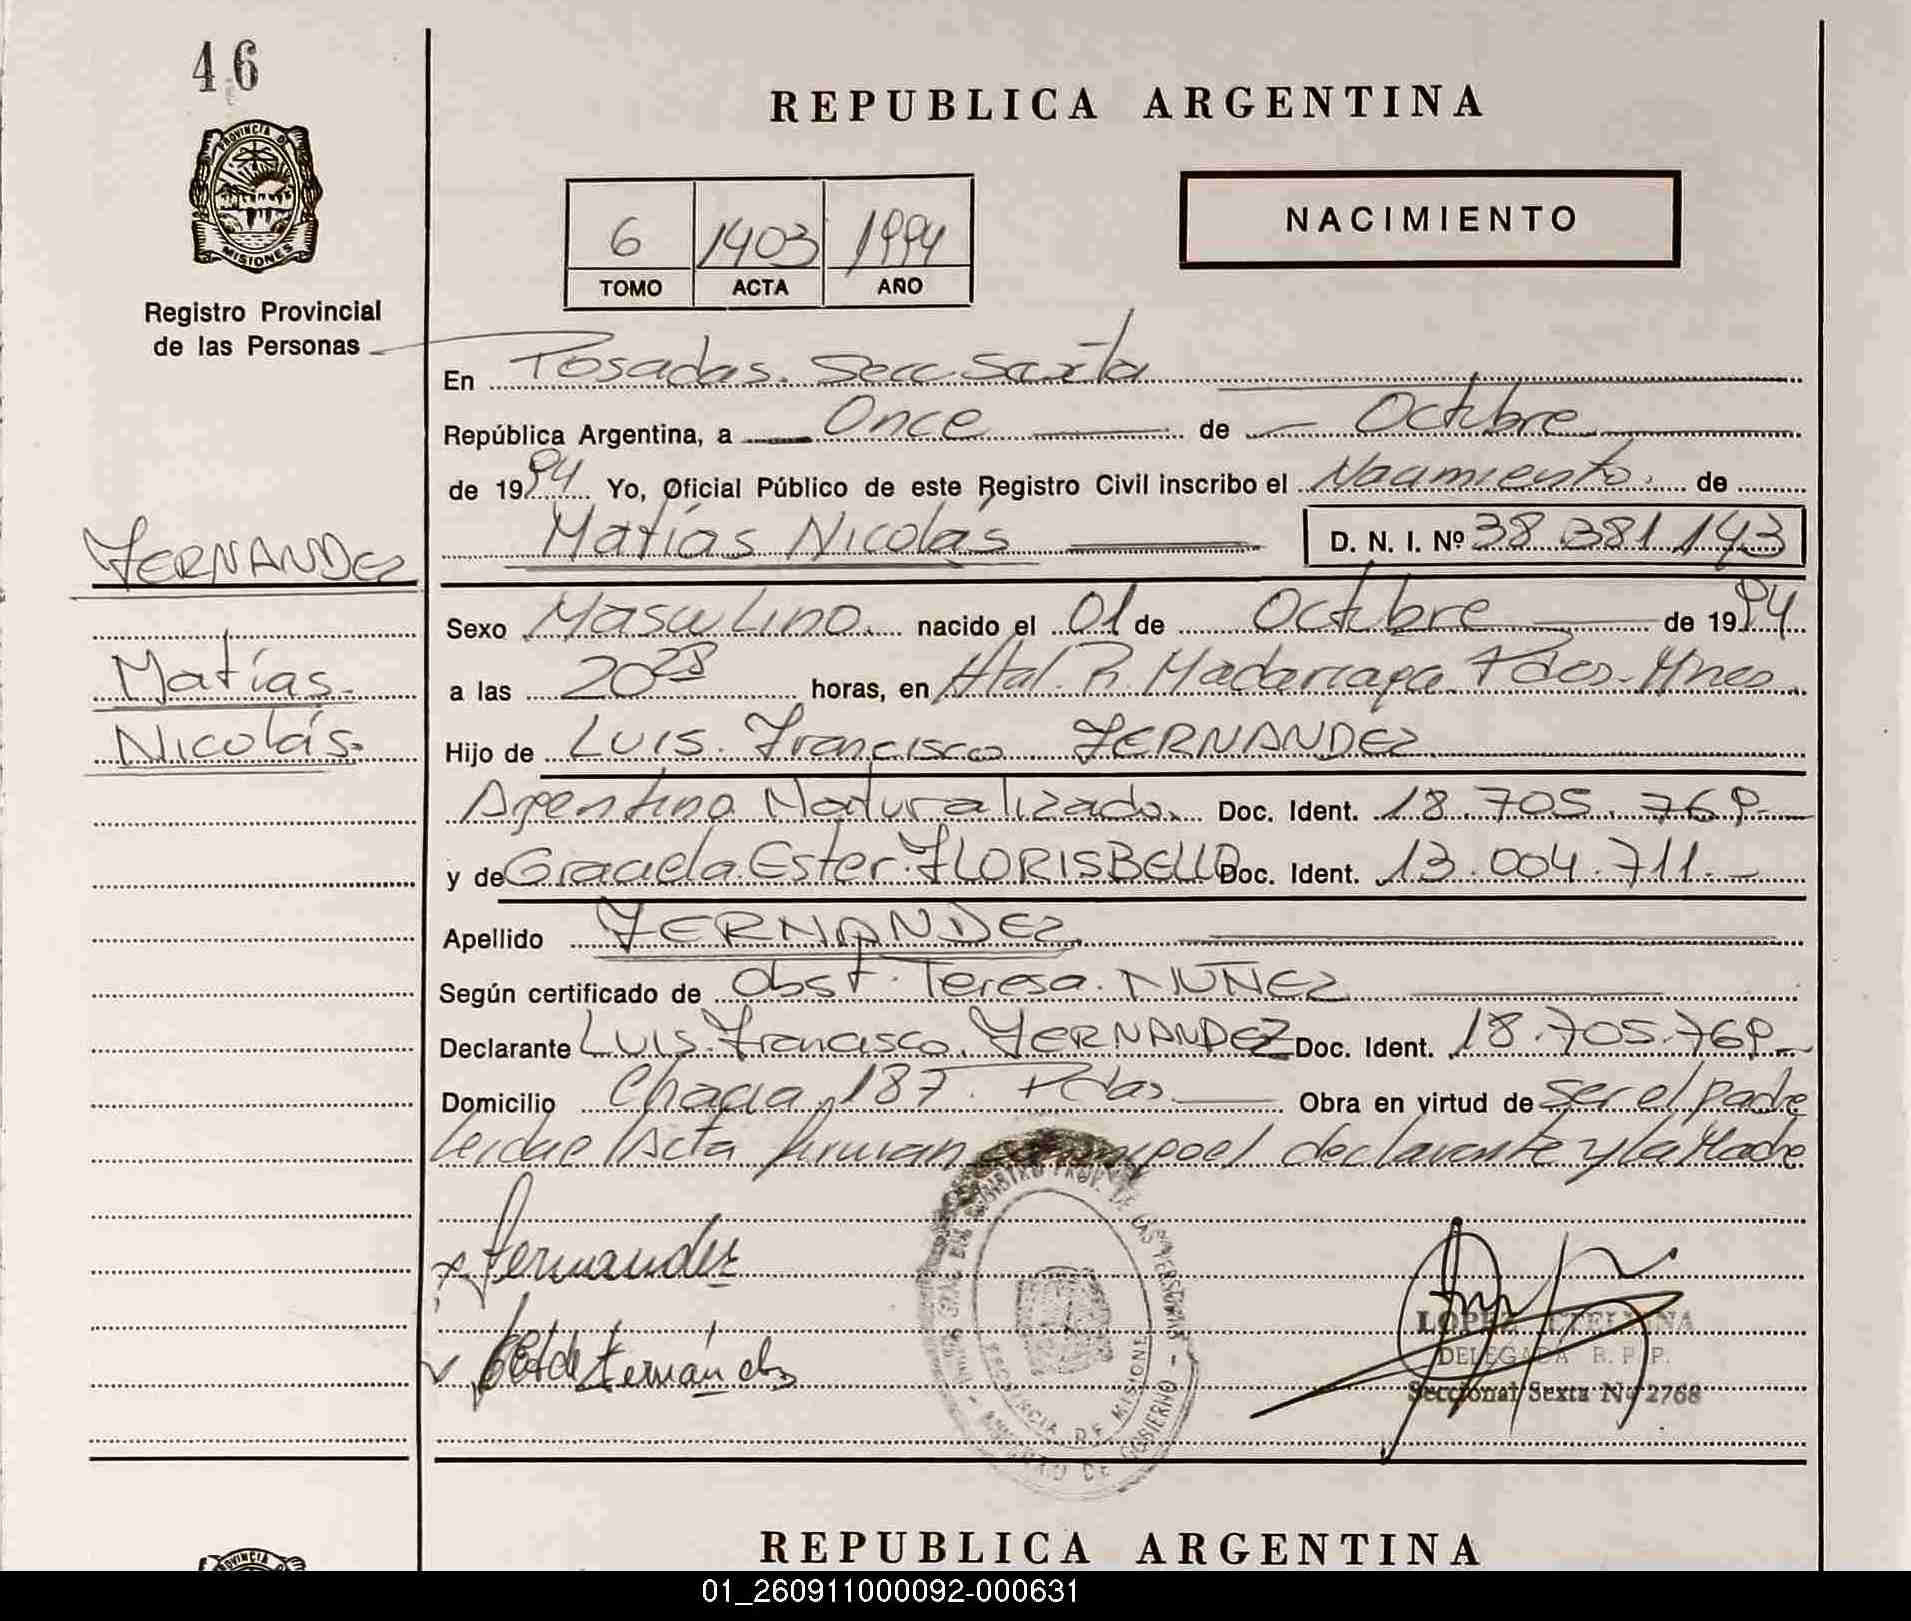 46
REPUBLICA ARGENTINA
PROVINCIA DE
MISIONES
Registro Provincial
de las Personas
NACIMIENTO
6 1403 1994
TOMO ACTA AÑO
En Posadas. Secc. Sexta
República Argentina, a Once de Octubre
de 1994 Yo, Oficial Público de este Registro Civil inscribo el Nacimiento de
Matías Nicolás D. N. I. Nº 38 381 143
FERNANDEZ
Matías
Nicolás
Sexo Masculino nacido el 01 de Octubre de 1994
a las 20 horas, en Htal. R. Madariaga Pdas. Mnes.
Hijo de Luis Francisco FERNANDEZ
Argentino Naturalizado Doc. Ident. 18.705.769
y de Graciela Ester FLORISBELLO Doc. Ident. 13.004.711
Apellido FERNANDEZ
Según certificado de Obst. Teresa NUÑEZ
Declarante Luis Francisco FERNANDEZ Doc. Ident. 18.705.769
Domicilio 187 Pdas Obra en virtud de ser el padre
Acta firman declarante y la Madre
Fernandez
de Fernández
LOPEZ ETELVINA
DELEGADA R. P. P.
Seccional Sexta Nº 2768
REPUBLICA ARGENTINA
PROVINCIA
01_260911000092-000631